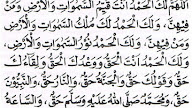 اللَّهُمَّ لَكَ الْحَمْدُ أَنْتَ قَيِّمُ السَّمَوَاتِ وَالْأَرْضِ وَمَنْ
فِيهِنَّ وَلَكَ الْحَمْدُ لَكَ مُلْكُ السَّمَوَاتِ وَالْأَرْضِ
وَمَنْ فِيهِنَّ، وَلَكَ الْحَمْدُ نُورُ السَّمَوَاتِ وَالْأَرْضِ،
وَلَكَ الْحَمْدُ أَنْتَ الْحَقُّ وَوَعْدُكَ الْحَقُّ وَلِقَاءُكَ
حَقٌّ وَقَوْلُكَ حَقٌّ وَالْجَنَّةُ حَقٌّ، وَالنَّارُ حَقٌّ، وَالنَّبِيُّونَ
حَقٌّ، وَمُحَمَّدٌ صَلَّى اللهُ عَلَيْهِ وَسَلَّمَ حَقٌّ، وَالسَّاعَةُ